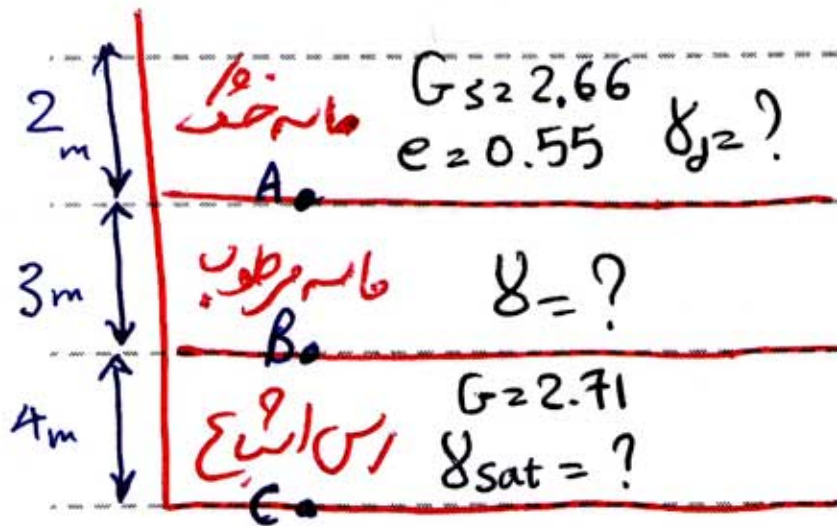 2m
ماسه خشک
Gs=2.66
e=0.55
γd=?
A
3m
ماسه مرطوب
γ=?
B
4m
رس اشباع
G=2.71
γsat=?
C